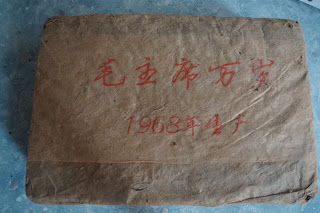 毛主席万岁
1968年生于